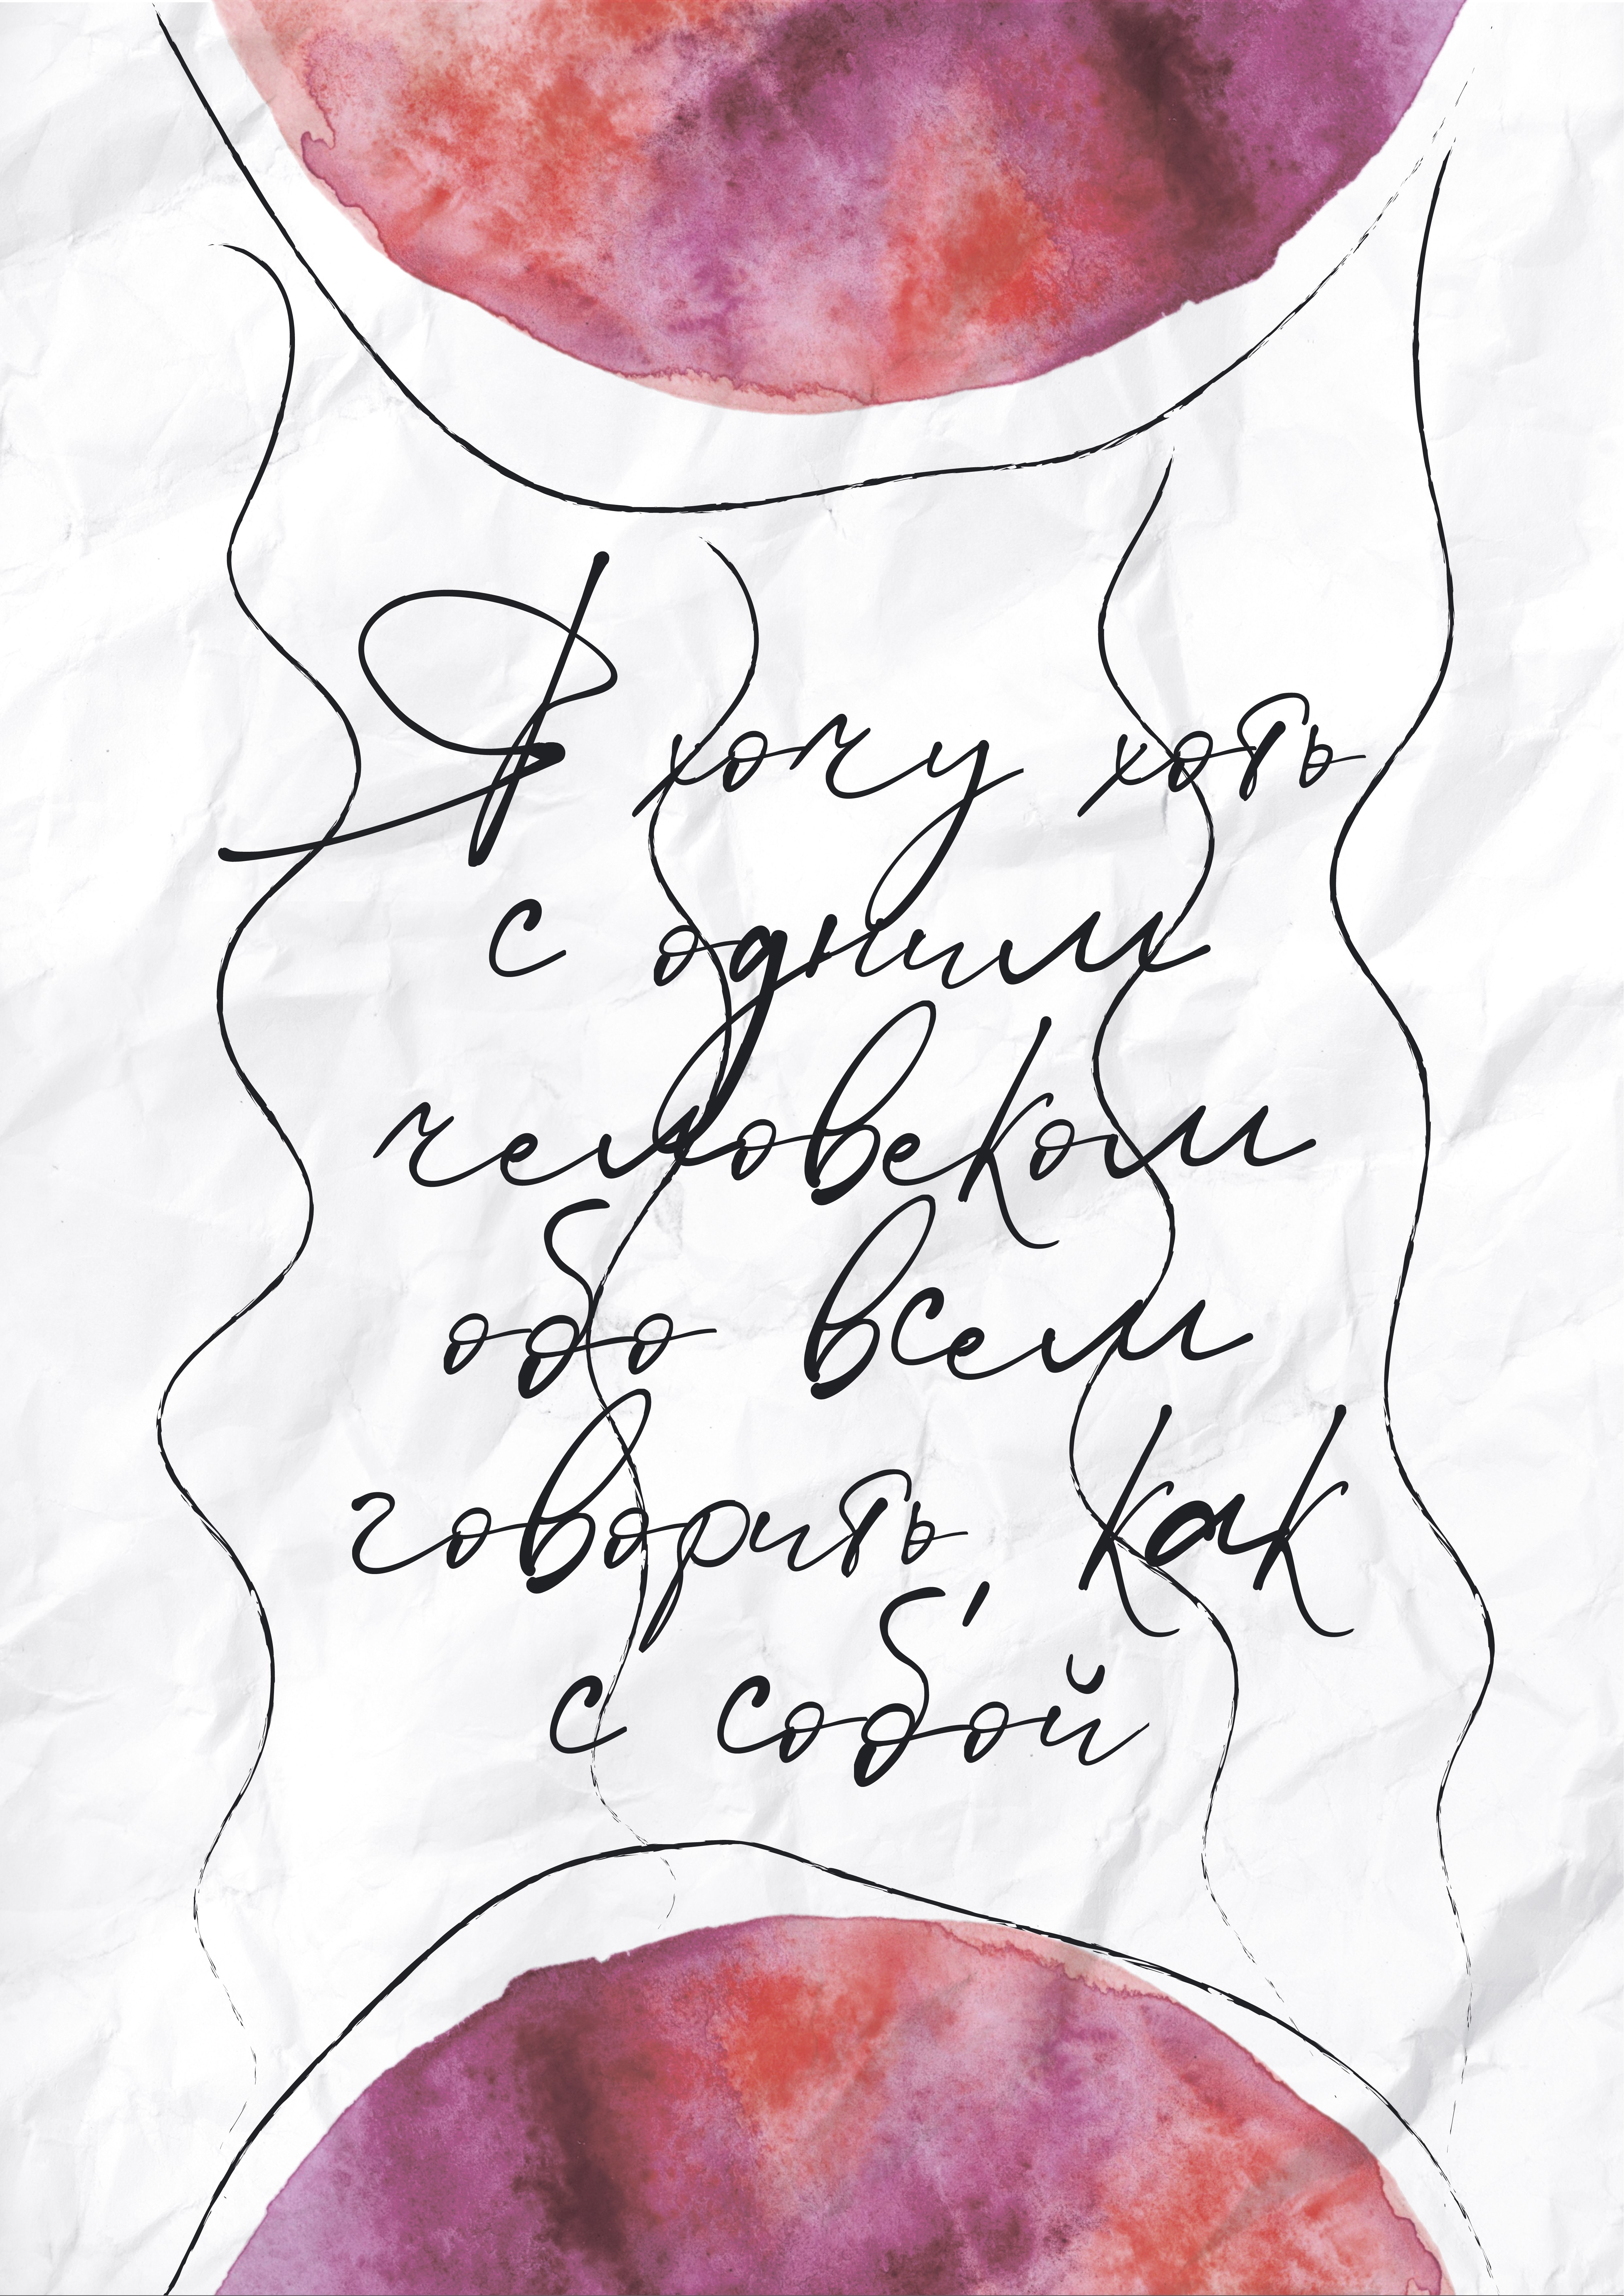 Я хочу хоть
с одним
человеком
обо всем
говорить как
с собой'